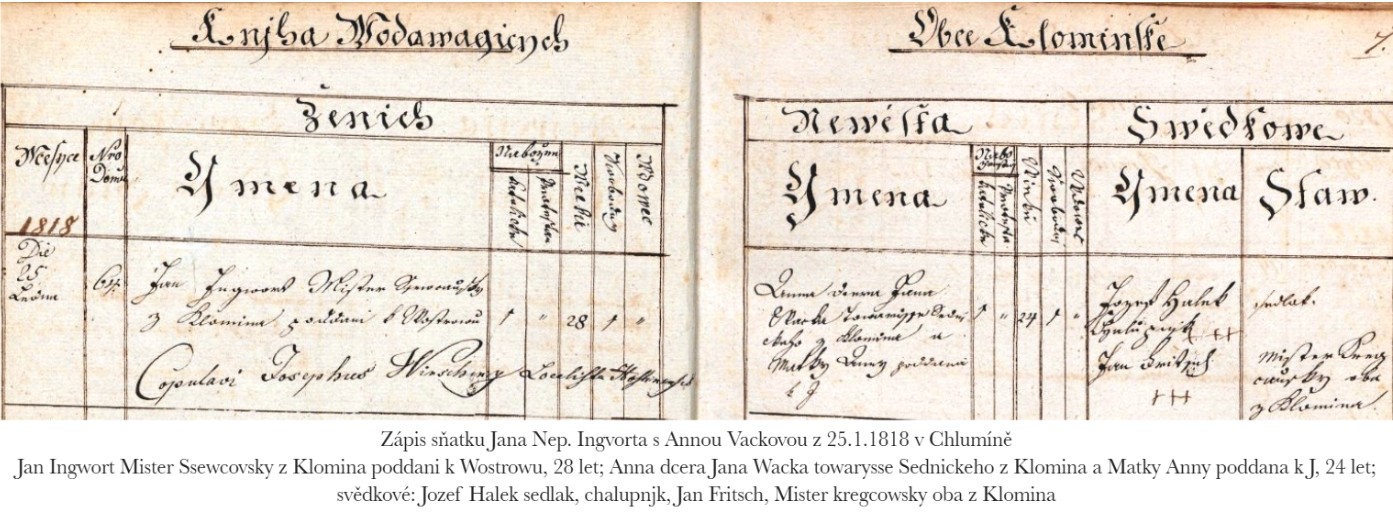 Knjha Wodawagicych
Obce Klominske
7.
Ženich
Newěsta
Swědkowe
Mesyce
Nro
Domu
Ymena
Nabožen
katolicke
Wěku
Swobodny
Wdowec
Ymena
Nabo
katolicke
Ymena
Staw.
1818
Die
25
Ledna
64.
Jan Ingwort Mister Ssewcowsky
z Klomina poddani k Wostrowu
1 " 28 1 "
Copulavi Josephus Localista
Anna dcera Jana
Wacka Towarisse Sedni
ckeho z Klomina a
Matky Anny poddana
k J
1 " 24 1 "
Jozef Halek
Chalupnjk
+++
Jan Fritsch
+++
sedlak.
Mister Kreg
cowsky oba
z Klomina
Zápis sňatku Jana Nep. Ingvorta s Annou Vackovou z 25.1.1818 v Chlumíně
Jan Ingwort Mister Ssewcovsky z Klomina poddani k Wostrowu, 28 let; Anna dcera Jana Wacka towarysse Sednickeho z Klomina a Matky Anny poddana k J, 24 let;
svědkové: Jozef Halek sedlak, chalupnjk, Jan Fritsch, Mister kregcowsky oba z Klomina